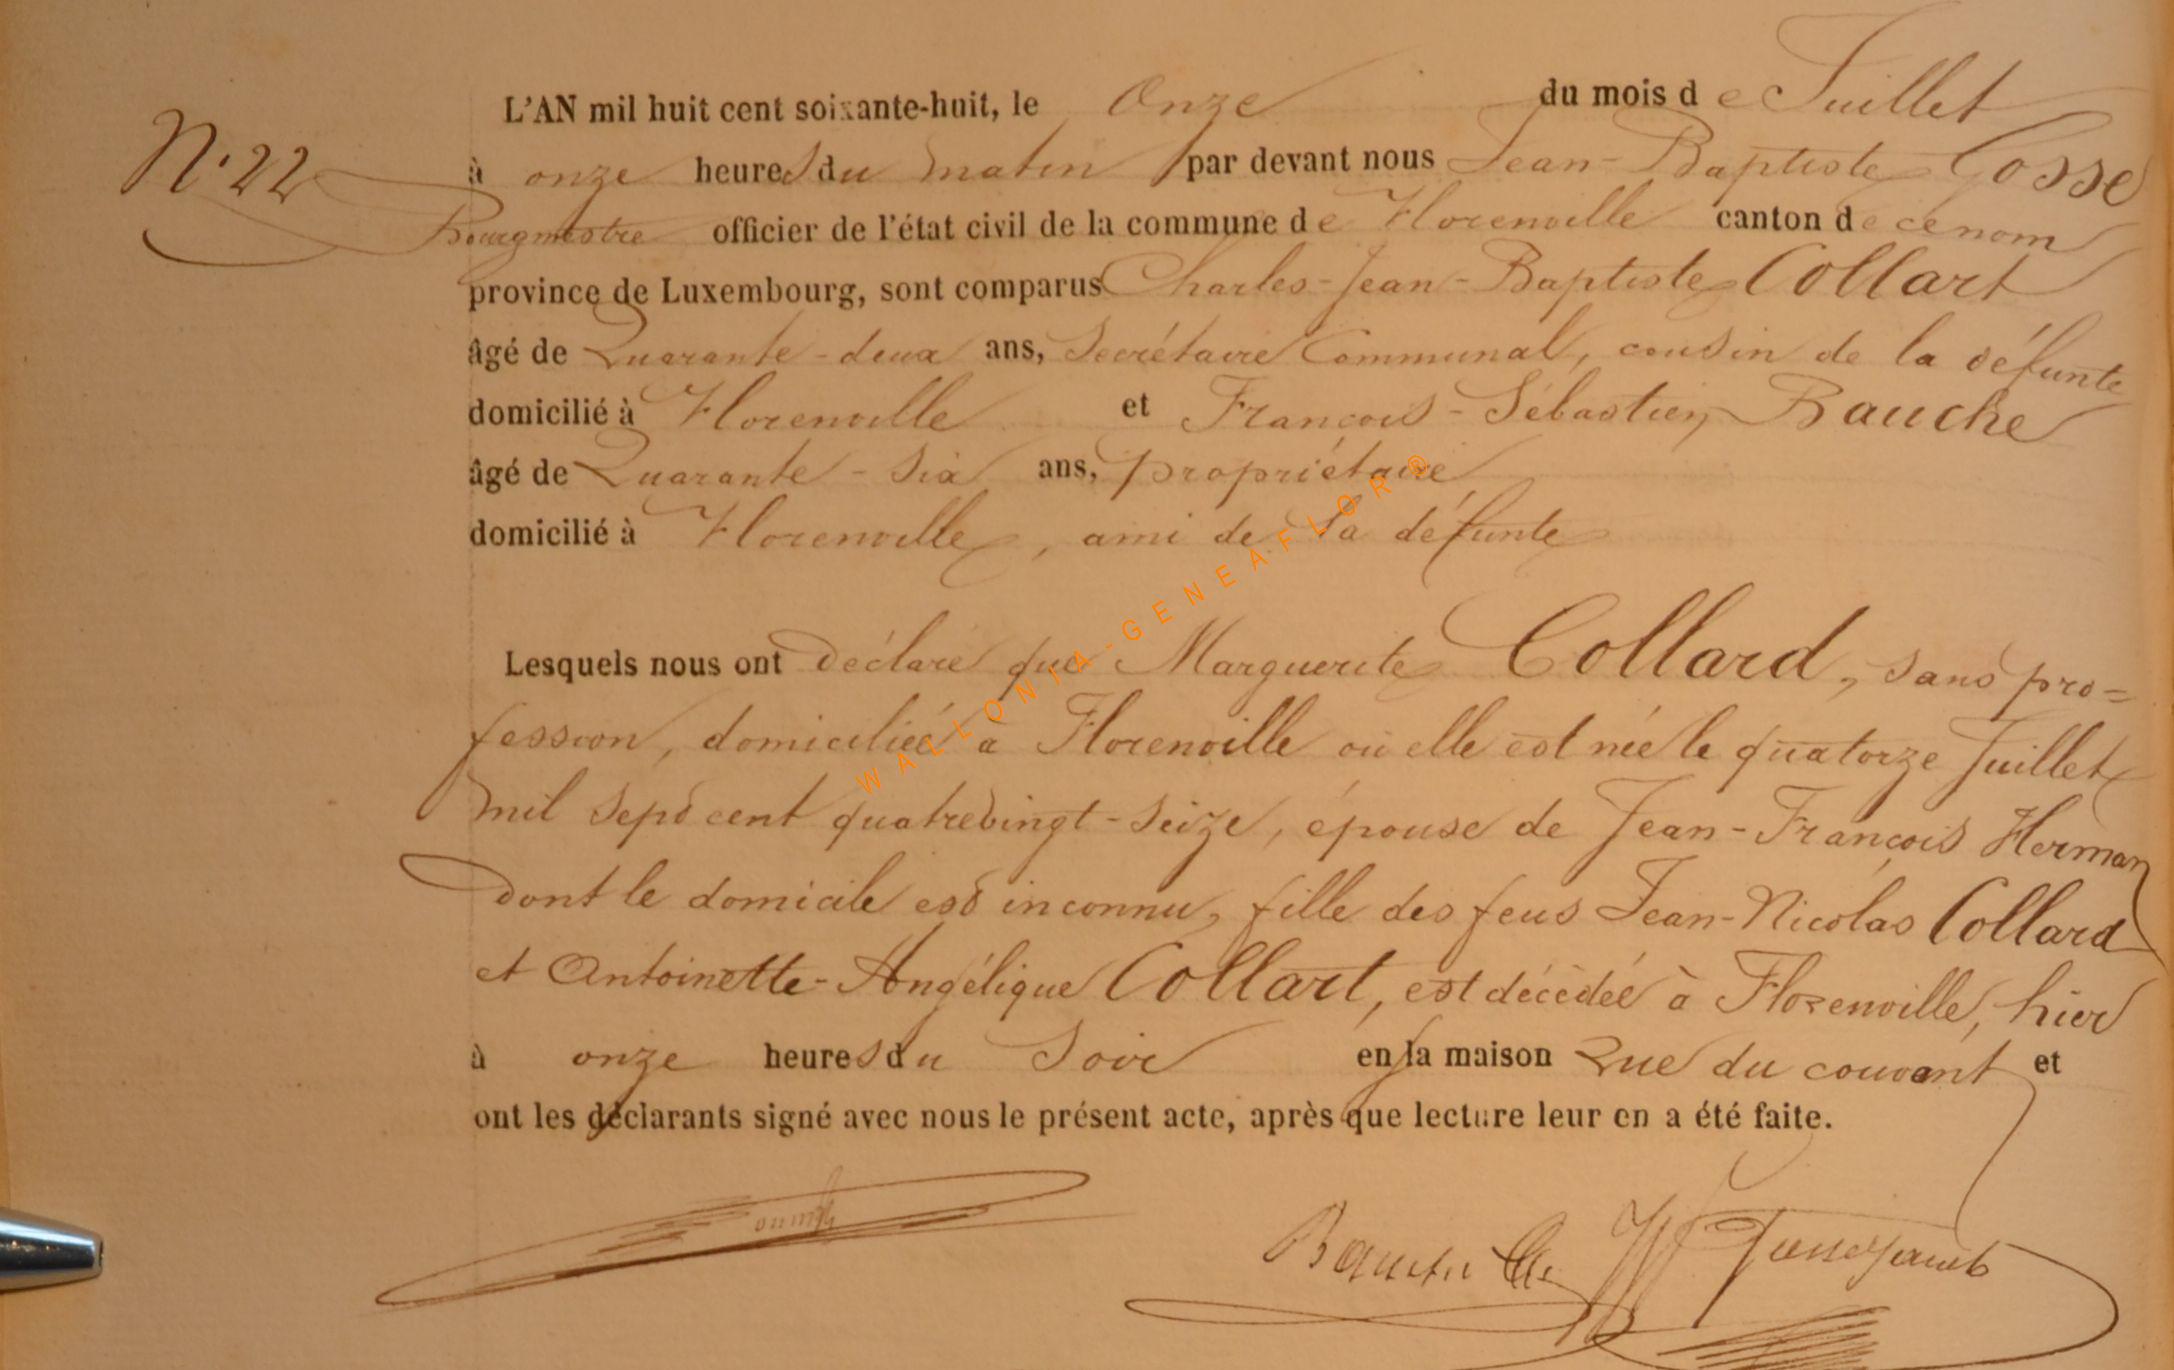 N° 22
L'AN mil huit cent soixante-huit, le Onze du mois de Juillet
à onze heures du matin par devant nous Jean-Baptiste Gosse
Bourgmestre officier de l'état civil de la commune de Florenville canton de ce nom
province de Luxembourg, sont comparus Charles-Jean-Baptiste Collart
âgé de Quarante-deux ans, Secrétaire Communal, cousin de la défunte
domicilié à Florenville et François-Sébastien Bauche
âgé de Quarante-six ans, propriétaire
domicilié à Florenville, ami de la défunte
Lesquels nous ont déclaré que Marguerite Collard, sans pro=
fession, domiciliée à Florenville où elle est née le quatorze Juillet
mil sept cent quatrevingt-seize, épouse de Jean-François Herman
dont le domicile est inconnu, fille des feus Jean-Nicolas Collard
et Antoinette-Angélique Collart, est décédée à Florenville, hier
à onze heures du Soir en la maison Rue du couvent et
ont les déclarants signé avec nous le présent acte, après que lecture leur en a été faite.
WALLONIA-GENEAFLOR®